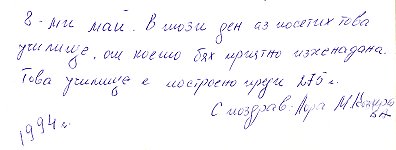 8-ми май. В този ден аз посетих това
училище, от което бях приятно изненадана.
Това училище е построено преди 175 г.
С поздрав:
1994 г.